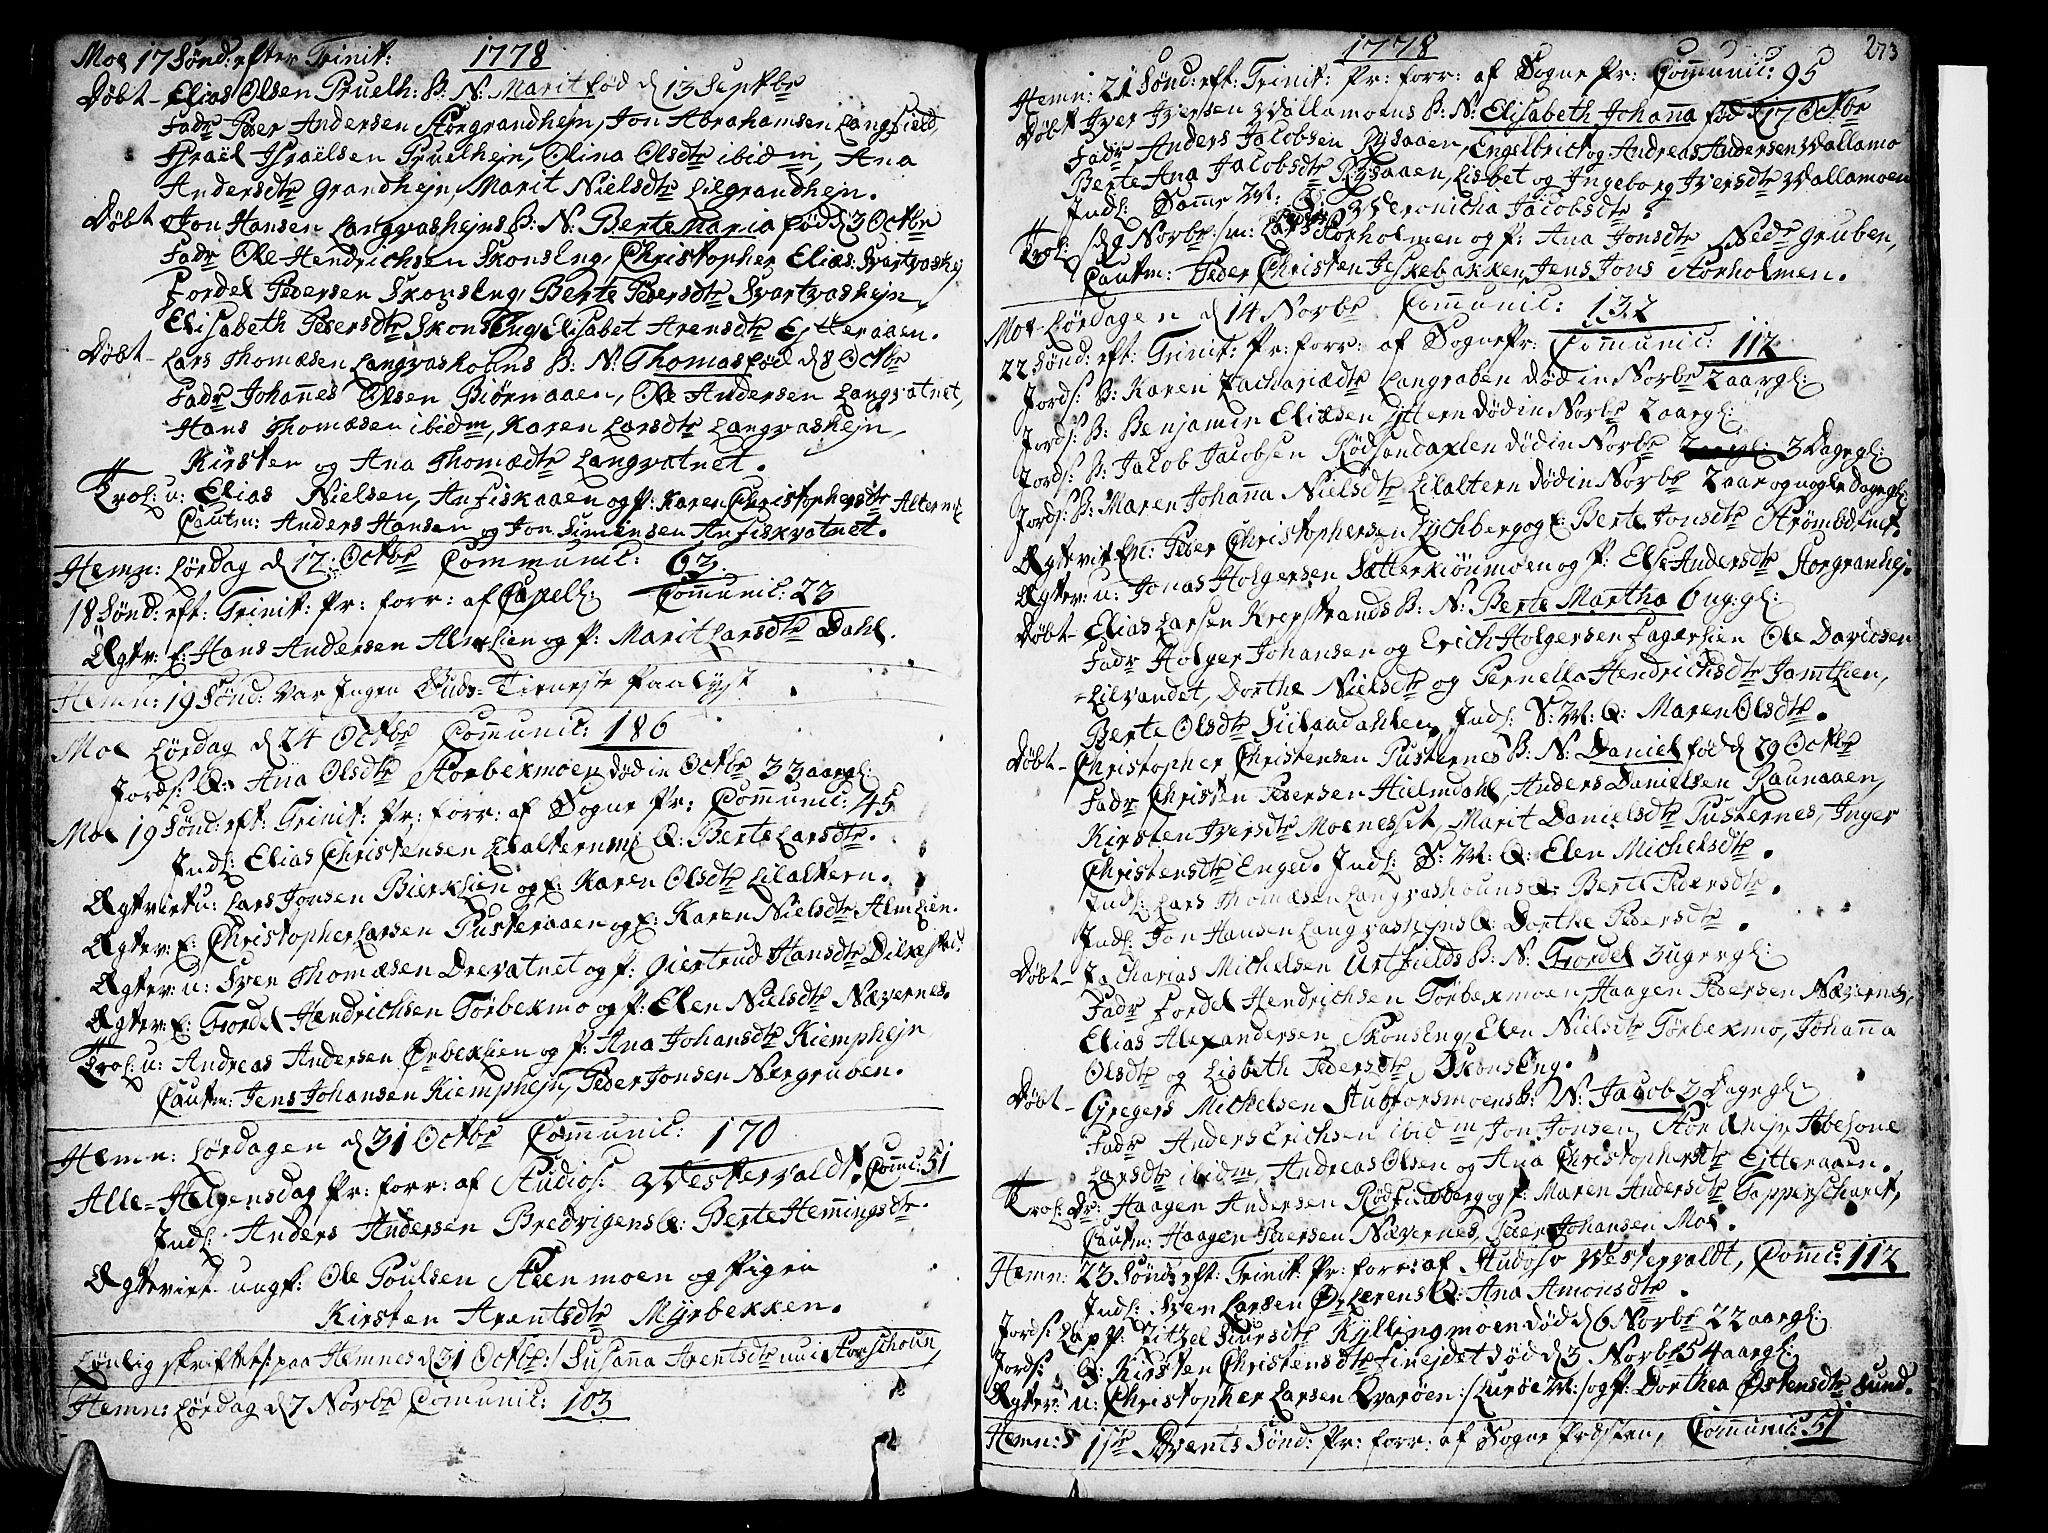 Moe 17 Sønd: efter Trinit: 1778
Døbt - Elias Olsen Pruelh: B: N: Marit fød d 13 Septbr
Fadr Peder Andersen Storgrandhejn, Jon Abrahamsen Langfield,
Israël Israëlsen Pruelhejn, Olina Olsdtr ibidm, Ana
Andersdtr Grandhejn, Marit Nielsdtr Lilgrandhejn.
Døbt Jon Hansen Langvashejns B: N: Berte Maria fød d 3 Octbr
Fadr Ole Hendrichsen Skonseng, Christopher Elias: Svartvashej
Fordel Pedersen Skonseng, Berte Pedersdtr Svartvashejn,
Elisabeth Pedersdtr Skonseng, Elisabet Arensdtr Ejtteraaen.
Døbt - Lars Thomæsen Langvasholms B: N: Thomas fød d 8 Octbr
Fadr Johannes Olsen Biørnaaen, Ole Andersen Langvatnet,
Hans Thomæsen ibidm, Karen Larsdtr Langvashejn,
Kirsten og Ana Thomædtr Langvatnet.
Trol: u: Elias Nielsen, Anfiskaaen og p: Karen Christophersdtr Altermi
Cautm: Anders Hansen og Jon Simensen Anfiskvatnet.
Hemn: Lørdag d 17: Octbr Communic: 63.
18 Sønd: eft: Trinit: Pr: forr: af Capell: Comunic: 23
Ægtv: E: Hans Andersen Almlien og P: Marit Larsdtr Dahl.
Hemn: 19 Sønd: Var Ingen Guds-Tieneste paalyst
Moe Lørdag d 24 Octbr Communic: 186
Jords: Q: Ana Olsdtr Storbekmoen død in Octbr 33 aar gl:
Moe 19 Sønd: eft: Trinit: Pr: forr: af Sogne Pr: Communic: 45
Indl: Elias Christensen Lilalternmi Q: Berte Larsdtr.
Ægtvirt u: Lars Jonsen Bierklien og E: Karen Olsdtr Lilaltern.
Ægtev: E: Christopher Larsen Pusteraaen og E: Karen Nielsdtr Almlien.
Ægtev: u: Sven Thomæsen Drevatnet og P: Giertrud Hansdtr
Ægtev: E: Fordel Hendrichsen Tørbekmo og P: Elen Nielsdtr Nævernes.
Trol: u: Andreas Andersen Ørbeklien og P: Ana Johansdtr Kiemphejn
Cautm: Jens Johansen Kiemphejn, Peder Jonsen Nergruben.
Hemn: Lørdagen d 31 Octbr Communic: 170
Alle-Helgensdag Pr: forr: af Studios: Westervaldt. Comnc: 51
Indl: Anders Andersen Bredvigens Q: Berte Hemingsdtr.
Ægteviet ungf: Ole Poulsen Steenmoen og Pigen
Kirsten Arentsdtr Myrbekken.
Lønlig skriftet: paa Hemnes d 31 Octbr:/ Susanna Arentsdtr Storschoun
Hemn: Lørdag d 7 Novbr Comunic: 103
1778 273
Hemn: 21 Sønd: eft: Trinit: Pr: forr: af Sogne Pr: Communic: 95
Døbt Iver Iversen Wallamoens B: N: Elisabeth Johanna fød d 17 Octbr
Fadr Anders Jacobsen Rysaaen, Engelbrict og Andreas Andersen Wallamo
Berte Ana Jacobsdtr Rysaaen, Lisbet og Ingeborg Iversdtr Wallamoen
Indl: Samme M: Q: Weronicha Jacobsdtr.
Trol: /d 9 Novbr:/ m: Lars Storholmen og P: Ana Jonsdtr Nedr Gruben,
Cautm: Peder Christen Jeskebakken, Jens Jons Storholmen.
Moe Lørdagen d 14 Novbr Communic: 132
22 Sønd: eft: Trinit: Pr: forr: af Sogne Pr: Communic: 112
Jords: B: Karen Zachariædtr Langraben død in Novbr 2 aar gl:
Jords: B: Benjamin Eliæsen Yttern død in Novbr 2 aar gl:
Jords: B: Jacob Jacobsen Rødsandaxlen død in Novbr 3 Dage gl:
Jords: B: Maren Johanna Nielsdtr Lilaltern død in Novbr 2 aar og nogle Dage gl:
Ægteviet Em: Peder Christophersen Lychberg og E: Berte Jonsdtr
Ægtev: u: Jonas Holgersen Sætterkiønmoen og P: Else Andersdtr Storgranhej.
Døbt - Elias Larsen Krepstrands B: N: Berte Martha 6 ug: gl:
Fadr Holger Johansen og Erich Holgersen Fagerlien Ole Davidsen
Lilvandet, Dorthe Nielsdtr og Pernella Hendrichsdtr Jamtlien,
Berte Olsdtr, Indl: S: M: Q: Maren Olsdtr.
Døbt - Christopher Christensen Pusternes B: N: Daniel fød d 29 Octbr
Fadr Christen Pedersen Hulmdahl, Anders Danielsen Raunaaen,
Kirsten Iversdtr Moenesset, Marit Danielsdtr Pusternes, Inger
Christensdtr Enged. Indl: S: M: Q: Elen Michelsdtr.
Indl: Lars Thomæsen Langvasholms Q: Berte Pedersdtr.
Indl: Jon Hansen Langvashejns Q: Dorthe Pedersdtr.
Døbt - Zacharias Michelsen Urtfields B: N: Fordel 3 uger gl:
Fadr Fordel Hendrichsen Tørbekmoen, Haagen Pedersen Nævernes,
Elias Alexandersen Skonseng, Elen Nielsdtr Tørbekmo, Johanna
Olsdtr og Lisbeth Pedersdtr Skonseng.
Døbt - Gregers Michelsen Stubforsmoens B: N: Jacob 3 Dage gl:
Fadr Anders Erichsen ibidm, Jon Jonsen, Abelone
Larsdtr ibidm, Andreas Olsen og Ana Christophersdtr Eitteraaen.
Trol: Dr: Haagen Andersen Rødfindberg og P: Maren Andersdtr Topperscharet,
Cautm: Haagen Pedersen Nævernes, Peder Johansen Moe.
Hemn: 23 Sønd: eft: Trinit: Pr: forr: af Studioso Westervaldt, Comc: 112
Indl: Sven Larsen Q: Ana Amonsdtr.
Jords: Lap P: Zitzel Kyllingmoen død d 6 Novbr 22 aar gl:
Jords: Q: Kirsten Christensdtr Finejdet død d 3 Novbr 54 aar gl:
Ægtev: u: Christopher Larsen Qvarøen :/Lurøe M:/ og P: Dorthea Østensdtr Sund.
Hemn: 1ste Advents Sønd: Pr: forr: af Sogne Præsten, Communic: 51